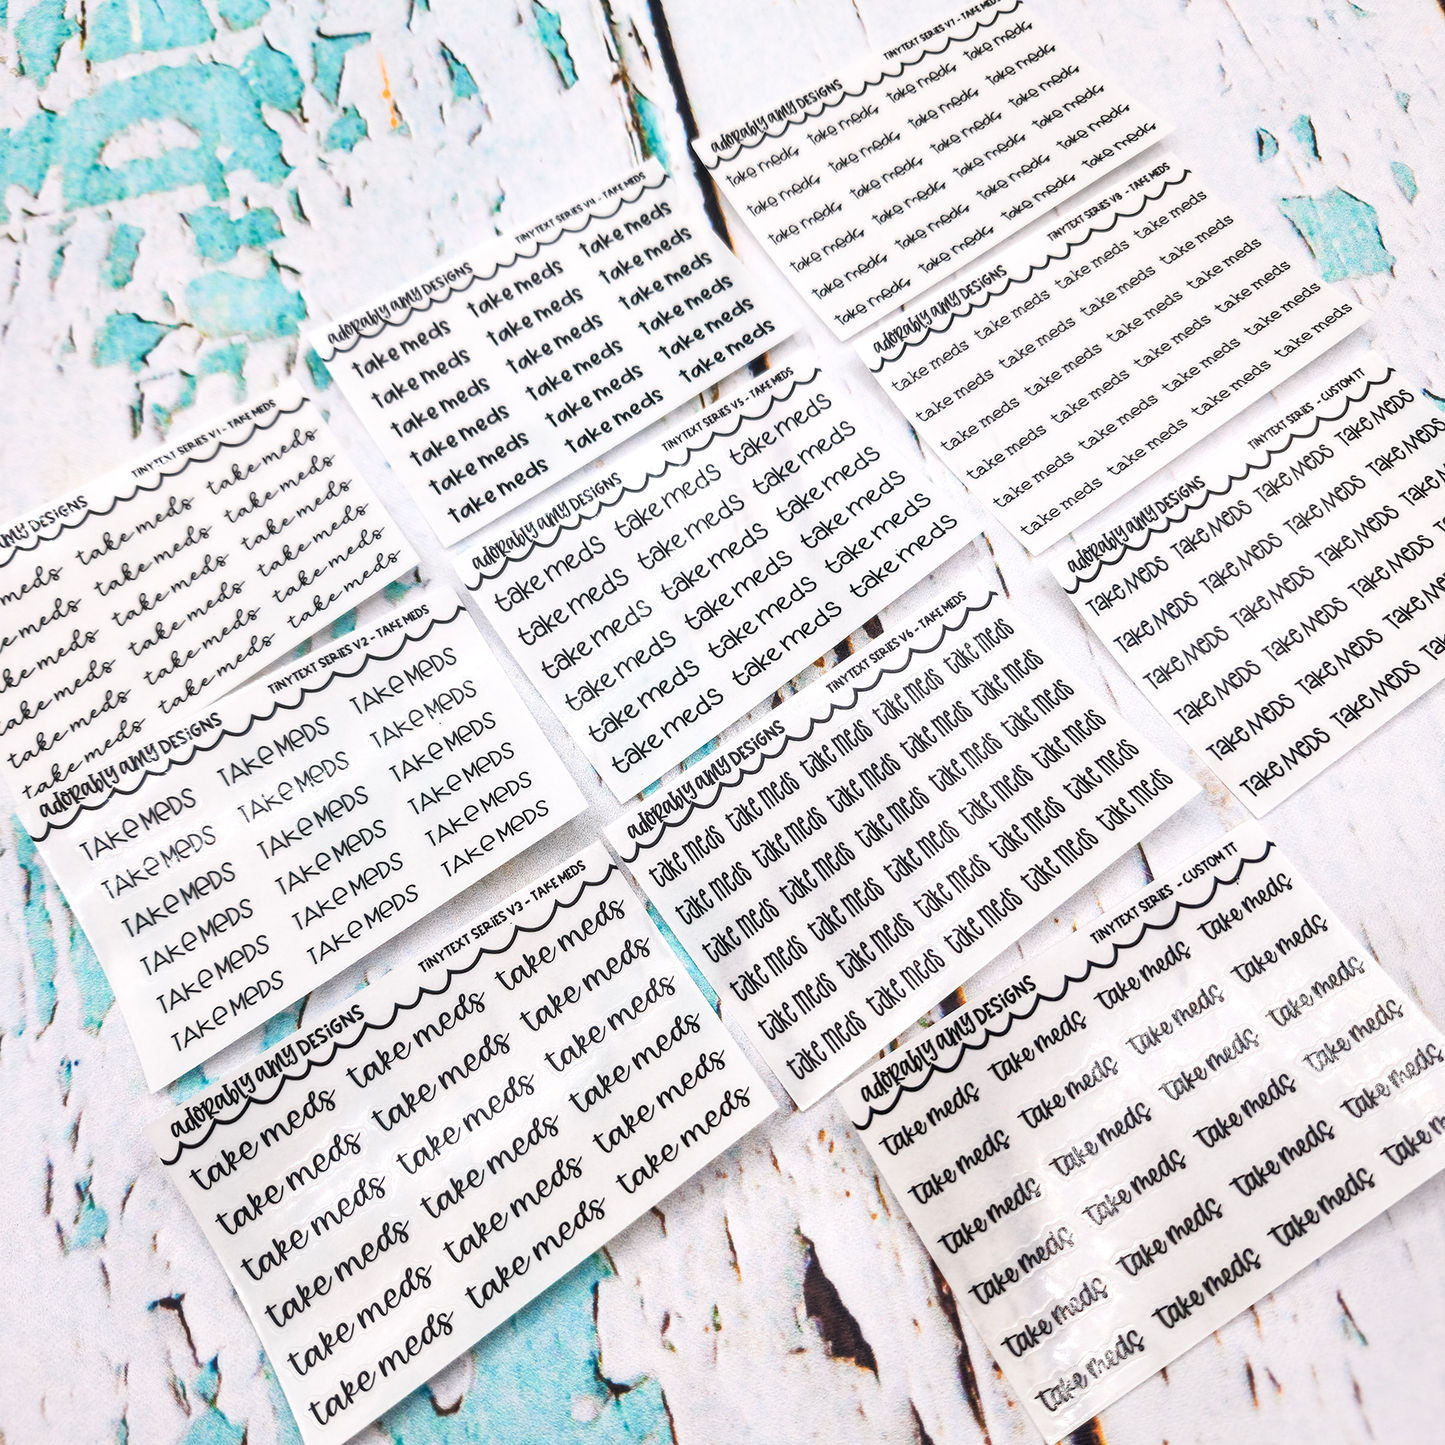 AMY DESIGNS TINYTEXT SERIES V1 - TAKE MEDS
meds take meds take meds
meds take meds take meds
meds take meds take meds
take meds take meds take meds
take meds take meds take meds
take meds take meds take meds
adorably amy DESIGNS TINYTEXT SERIES V2 - TAKE MEDS
TAKE MEDS TAKE MEDS TAKE MEDS
TAKE MEDS TAKE MEDS TAKE MEDS
TAKE MEDS TAKE MEDS TAKE MEDS
TAKE MEDS TAKE MEDS TAKE MEDS
TAKE MEDS TAKE MEDS TAKE MEDS
TAKE MEDS TAKE MEDS TAKE MEDS
adorably amy DESIGNS TINYTEXT SERIES V3 - TAKE MEDS
take meds take meds take meds
take meds take meds take meds
take meds take meds take meds
take meds take meds take meds
take meds take meds take meds
take meds take meds take meds
adorably amy DESIGNS TINYTEXT SERIES V4 - TAKE MEDS
take meds take meds take meds
take meds take meds take meds
take meds take meds take meds
take meds take meds take meds
take meds take meds take meds
take meds take meds take meds
adorably amy DESIGNS TINYTEXT SERIES V5 - TAKE MEDS
take meds take meds take meds
take meds take meds take meds
take meds take meds take meds
take meds take meds take meds
take meds take meds take meds
take meds take meds take meds
adorably amy DESIGNS TINYTEXT SERIES V6 - TAKE MEDS
take meds take meds take meds take meds take meds
take meds take meds take meds take meds take meds
take meds take meds take meds take meds take meds
take meds take meds take meds take meds take meds
take meds take meds take meds take meds take meds
take meds take meds take meds take meds take meds
adorably amy DESIGNS TINYTEXT SERIES V7 - TAKE MEDS
take meds take meds take meds take meds
take meds take meds take meds take meds
take meds take meds take meds take meds
take meds take meds take meds take meds
take meds take meds take meds take meds
take meds take meds take meds take meds
adorably amy DESIGNS TINYTEXT SERIES V8 - TAKE MEDS
take meds take meds take meds take meds
take meds take meds take meds take meds
take meds take meds take meds take meds
take meds take meds take meds take meds
take meds take meds take meds take meds
take meds take meds take meds take meds
adorably amy DESIGNS TINYTEXT SERIES - CUSTOM TT
Take Meds Take Meds Take Meds Take Meds
Take Meds Take Meds Take Meds Take Meds
Take Meds Take Meds Take Meds Take
Take Meds Take Meds Take Meds
Take Meds Take Meds Take Meds
Take Meds Take Meds
adorably amy DESIGNS TINYTEXT SERIES - CUSTOM TT
take meds take meds take meds take meds
take meds take meds take meds take meds
take meds take meds take meds take meds
take meds take meds take meds take meds
take meds take meds take meds take meds
take meds take meds take meds take m